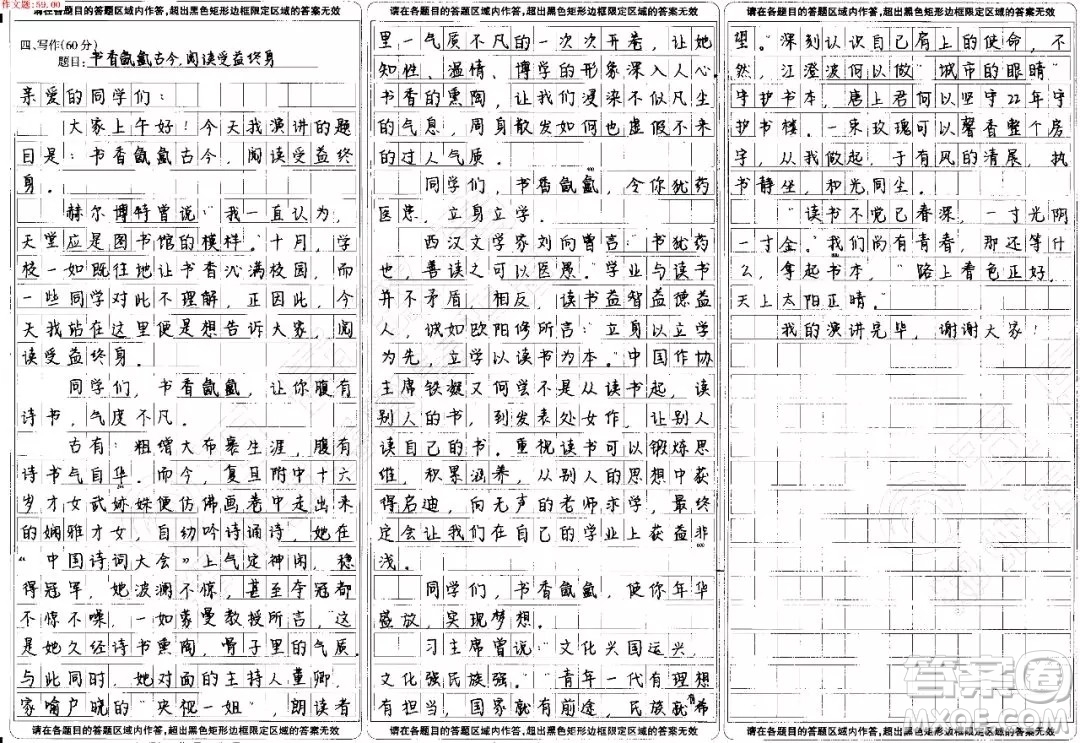 作文题:59.00
请在各题目的答题区域内作答,超出黑色矩形边框限定区域的答案无效
四.写作(60分)
题目: 书香氤氲古今,阅读受益终身
亲爱的同学们:
大家上午好!今天我演讲的题
目是:书香氤氲古今,阅读受益终
身。
赫尔博特曾说:“我一直认为,
天堂应是图书馆的模样。”十月,学
校一如既往地让书香沁满校园,而
一些同学对此不理解,正因此,今
天我站在这里便是想告诉大家,阅
读受益终身。
同学们,书香氤氲,让你腹有
诗书,气度不凡。
古有:粗缯大布裹生涯,腹有
诗书气自华。而今,复旦附中十六
岁才女武亦姝便仿佛画卷中走出来
的娴雅才女,自幼吟诗诵诗,她在
“中国诗词大会》上气定神闲,稳
得冠军,她波澜不惊,甚至夺冠都
不惊不噪,一如蒙曼教授所言,“这
是她久经诗书熏陶,骨子里的气质。
与此同时,她对面的主持人董卿,
家喻户晓的“央视一姐”,朗读者
请在各题目的答题区域内作答,超出黑色矩形边框限定区域的答案无效
请在各题目的答题区域内作答,超出黑色矩形边框限定区域的答案无效
里一气质不凡的一次次开卷,让她
知性、温情、博学的形象深入人心。
书香的熏陶,让我们浸染不似凡尘
的气息,周身散发如何也虚假不来
的过人气质。
同学们,书香氤氲,令你犹药
医愚,立身立学。
西汉文学家刘向曾言:“书犹药
也,善读之可以医愚。”学业与读书
并不矛盾,相反,读书益智益德益
人,诚如欧阳修所言:“立身以立学
为先,立学以读书为本。”中国作协
主席铁凝又何尝不是从读书起,读
别人的书,到发表处女作,让别人
读自己的书。重视读书可以锻炼思
维,积累涵养,从别人的思想中获
得启迪,向无声的老师求学,最终
定会让我们在自己的学业上获益非
浅。
同学们,书香氤氲,使你年华
盛放,实现梦想。
习主席曾说:“文化兴国运兴,
文化强民族强。”“青年一代有理想
有担当,国家就有前途,民族就有希
请在各题目的答题区域内作答,超出黑色矩形边框限定区域的答案无效
请在各题目的答题区域内作答,超出黑色矩形边框限定区域的答案无效
望。”深刻认识自己肩上的使命,不
然,江澄波何以做“城市的眼睛”
守护书本,唐上君何以坚守22年守
护书楼。一束玫瑰可以馨香整个房
子,从我做起,于有风的清晨,执
书静坐,和光同尘。
“读书不觉已春深,一寸光阴
一寸金。”我们尚有青春,那还等什
么,拿起书本,“路上春色正好,
天上太阳正晴。”
我的演讲完毕,谢谢大家!
请在各题目的答题区域内作答,超出黑色矩形边框限定区域的答案无效
答案圈
MXQE.COM